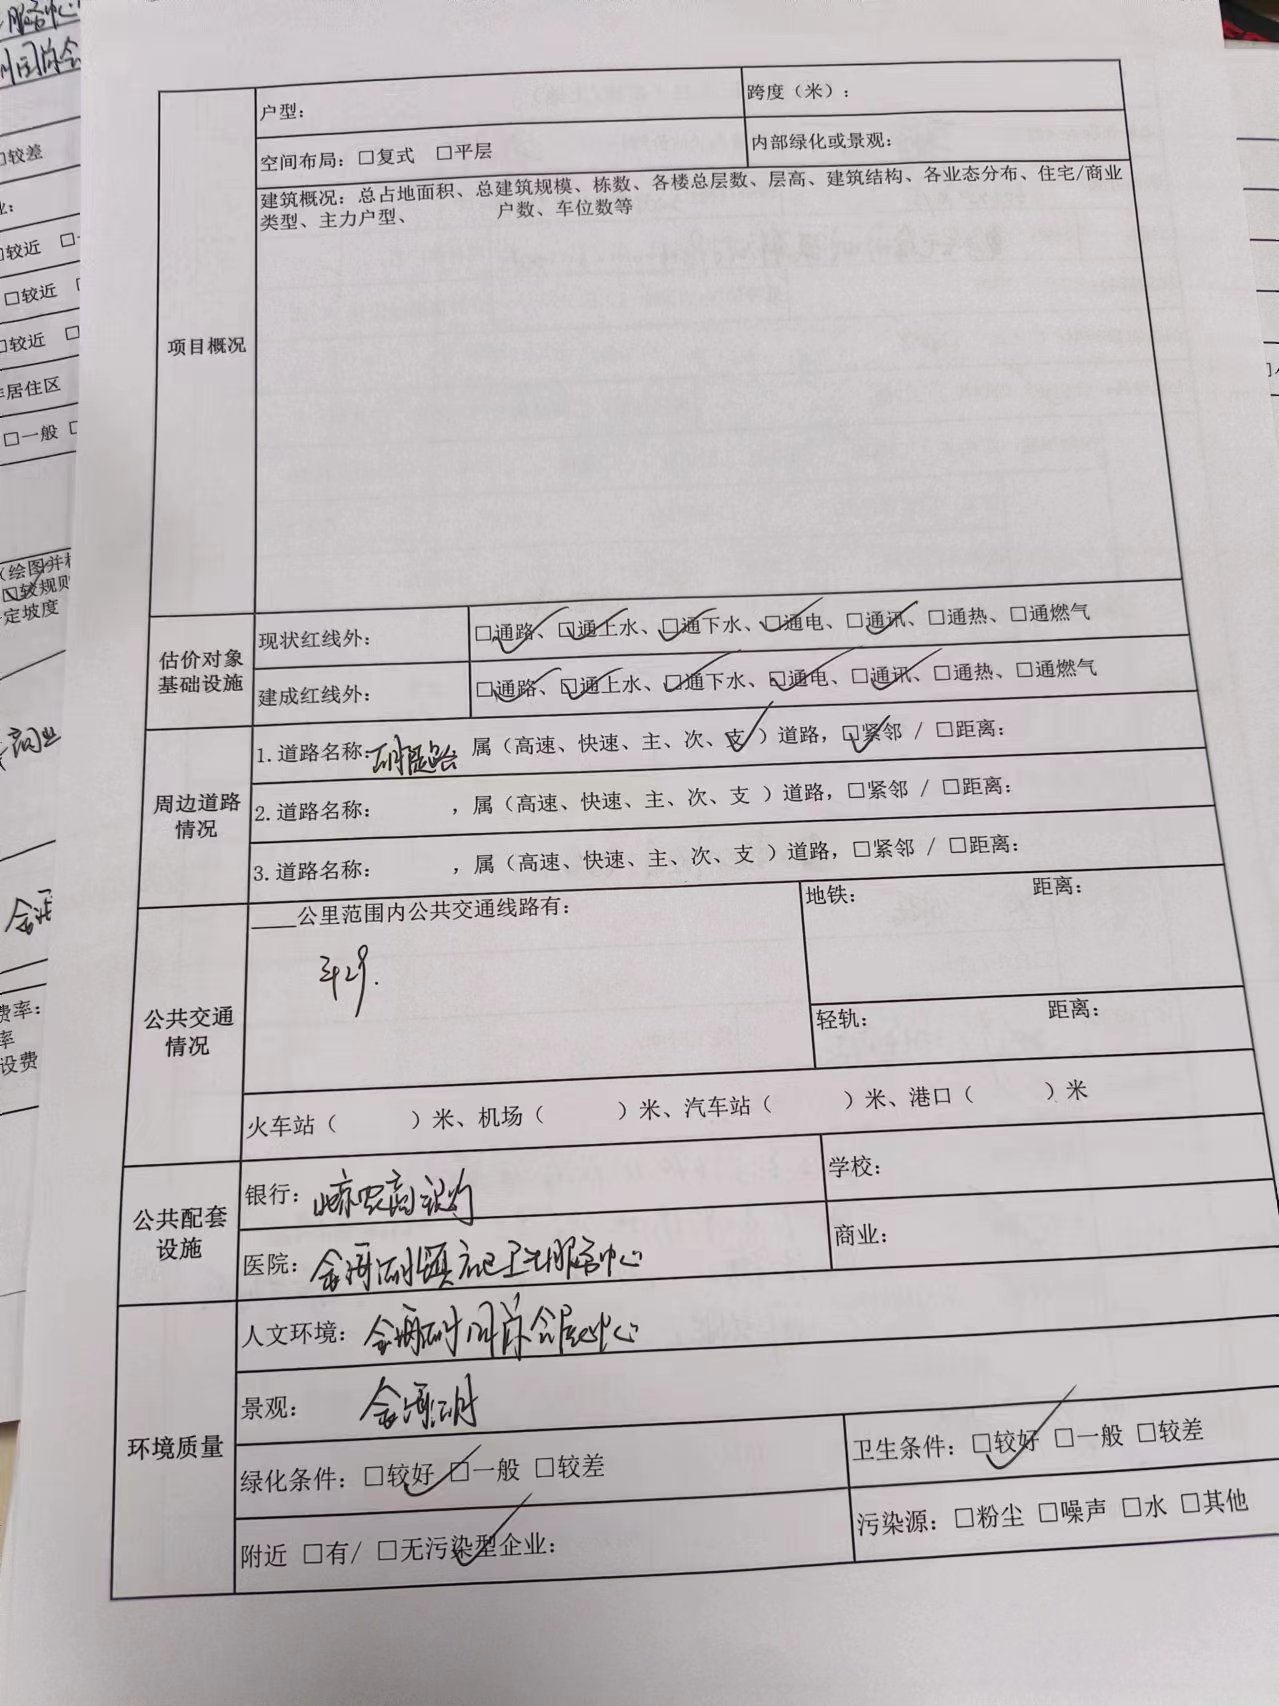 户型：
跨度（米）：
空间布局：□复式 □平层
内部绿化或景观：
建筑概况：总占地面积、总建筑规模、栋数、各楼总层数、层高、建筑结构、各业态分布、住宅/商业
类型、主力户型、 户数、车位数等
项目概况
估价对象
基础设施
现状红线外：
□通路、□通上水、□通下水、□通电、□通讯、□通热、□通燃气
建成红线外：
□通路、□通上水、□通下水、□通电、□通讯、□通热、□通燃气
周边道路
情况
1.道路名称： 属（高速、快速、主、次、支 ）道路，□紧邻 / □距离：
2.道路名称： ，属（高速、快速、主、次、支 ）道路，□紧邻 / □距离：
3.道路名称： ，属（高速、快速、主、次、支 ）道路，□紧邻 / □距离：
公共交通
情况
____公里范围内公共交通线路有：
地铁： 距离：
轻轨： 距离：
火车站（ ）米、机场（ ）米、汽车站（ ）米、港口（ ）米
公共配套
设施
银行：北京农商银行
学校：
医院：金海湖镇 卫生服务中心
商业：
环境质量
人文环境：金海湖国际会展中心
景观：金海湖
绿化条件：□较好 □一般 □较差
卫生条件：□较好 □一般 □较差
附近 □有/ □无污染型企业：
污染源：□粉尘 □噪声 □水 □其他
□较差
□较近
□较近
□较近
居住区
□一般
（绘图并
□较规则
定坡度
商业
费率：
率
设费